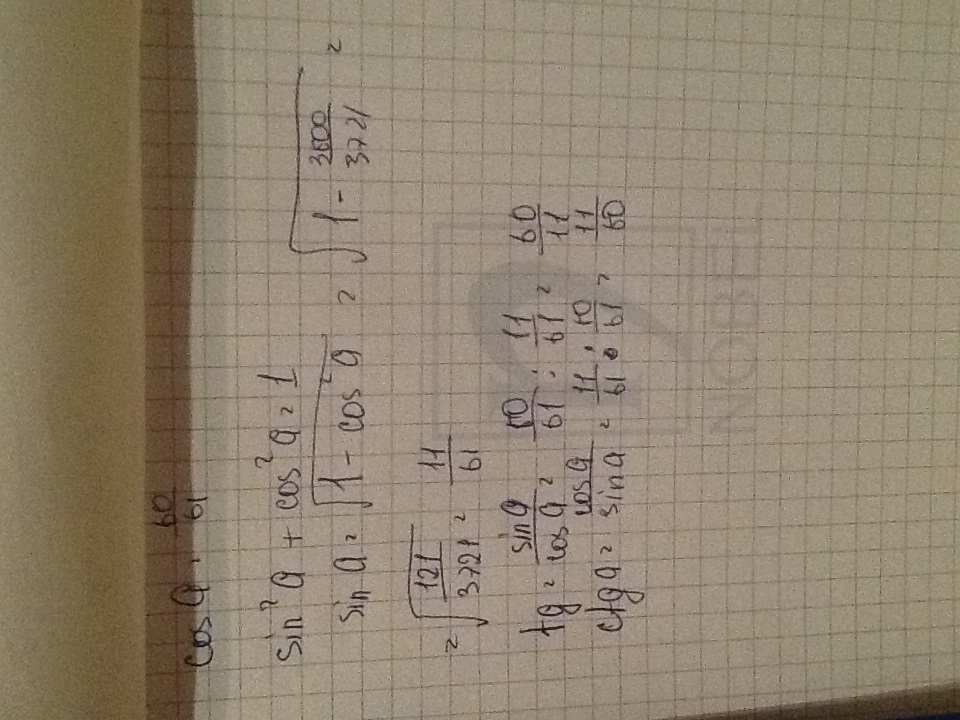 cos a = 60/61
sin² a + cos² a = 1
sin a = √(1 - cos² a) = √(1 - 3600/3721) =
= √(121/3721) = 11/61
tg = sin a/cos a = 60/61 : 11/61 = 60/11
ctg a = cos a/sin a = 11/61 : 10/61 = 11/60